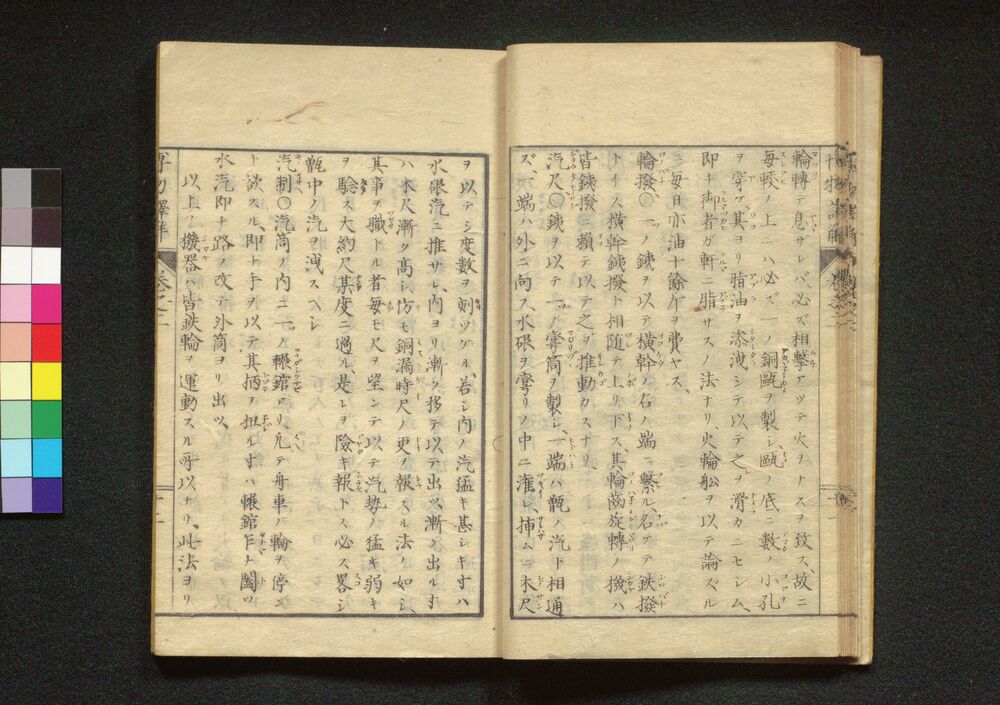 輪轉テ息ザレバ、必ズ相擊アツテ火ヲナスヲ致ス、故ニ
毎較ノ上ニハ必ズ一ノ銅甌ヲ製シ、甌ノ底ニ數ノ小孔
ヲ穿ゲ、其ヨリ脂油ヲ滲洩シテ以テ之ヲ滑カニセシム、
即チ御者ガ軒ニ脂サスノ法ナリ、火輪船ヲ以テ論ズル
ニ毎日亦油十餘斤ヲ費ヤス、
輪撥〇一ノ銕ヲ以テ橫幹ノ右ノ端ニ繫ル、名ケテ鉄撥
トイフ橫幹銕撥ト相随テ上リ下ス、其輪齒旋轉ノ機ハ
皆銕撥ニ賴テ以テ之ヲ推動カスナリ、
汽尺〇銕ヲ以テ一ノ彎筒ヲ製シ、一端ハ甑ノ汽下相通
ズ、一端ハ外ニ向フ、水硍ヲ彎リノ中ニ滙シ、揷ムニ木尺
ヲ以テシ度数ヲ刻ツケル、若シ内ノ汽猛キ甚シキ寸ハ
水硍汽ニ推サレ、内ヨリ漸ク移テ以テ出ツ、漸ク出ル寸
ハ木尺漸ク高シ、仿モ銅漏時尺ノ更ヲ報スル法ノ如シ、
其事ヲ職トル者毎モ尺ヲ望ンテ以テ汽勢ノ猛キ弱キ
ヲ騐ス大約尺某度ニ過ル、是レヲ險キ報トス必ス畧シ
甑中ノ汽ヲ洩スヘシ
汽制〇汽筒ノ内ニ一ノ輾錧アリ、凢テ舟車ノ輪ヲ停メン
ト欲スル、即ト手ヲ以テ其柄ヲ扭ル寸ハ輾錧乍ト闔ツ
水汽即チ路ヲ改テ外筒ヨリ出ツ、
以上ノ機器ハ皆鉄輪ヲ運動スル所以ナリ、此法ヨリ